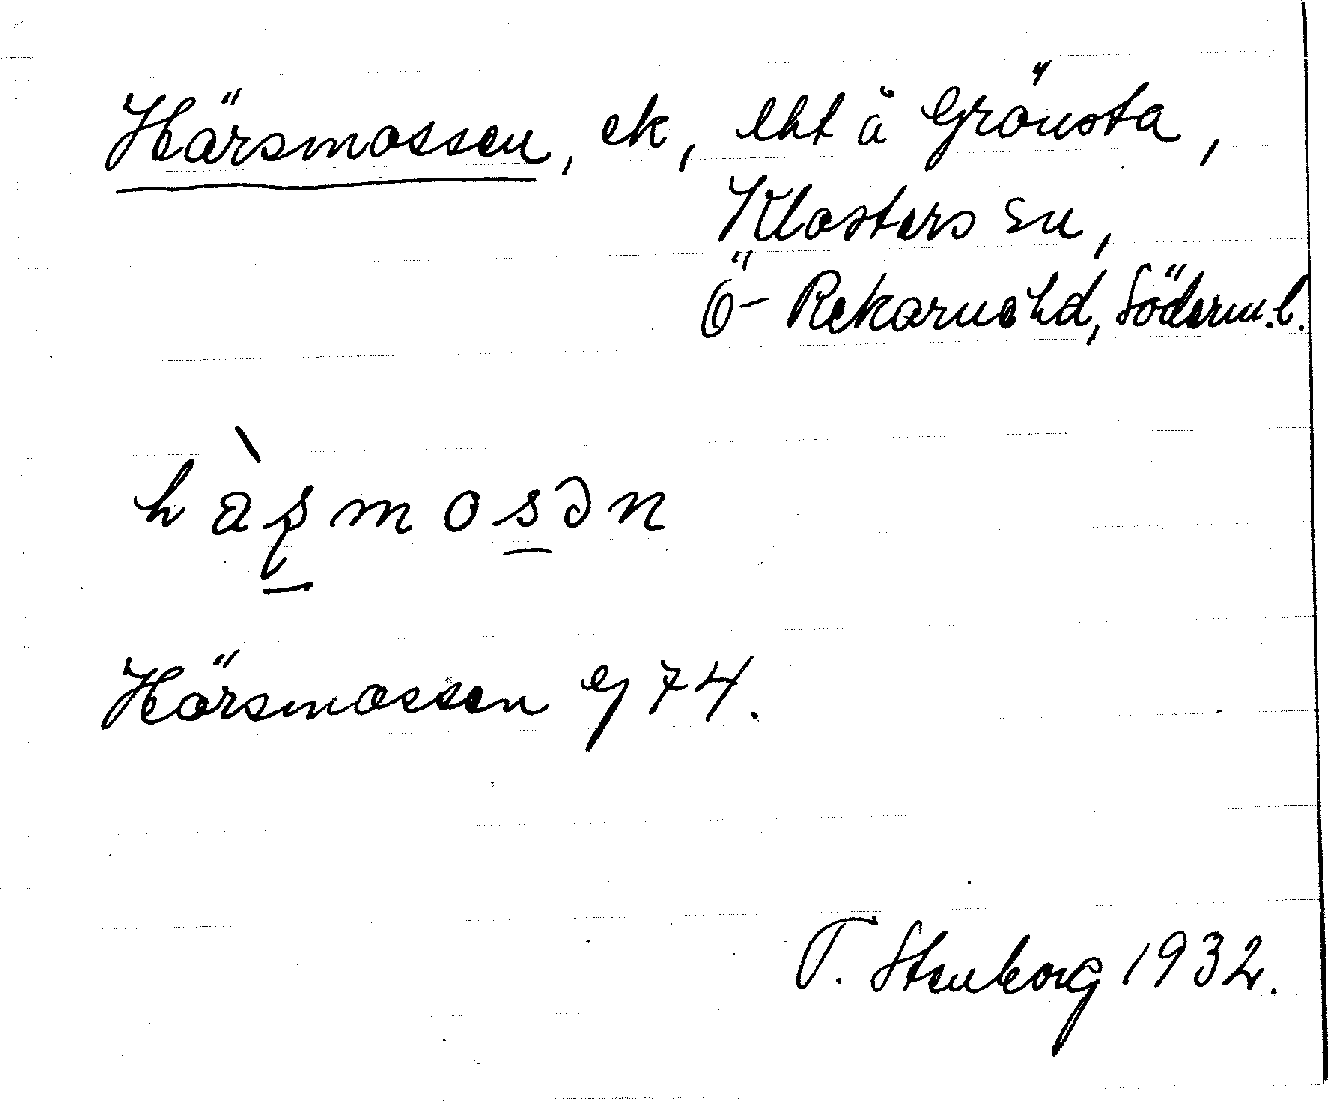 Härsmossen, ek, lht å Grönsta,
Klosters sn,
Ö- Rekarnehd, Söderm.l.
hàʂmosən
Härsmossen Ej 74.
T. Stenborg 1932.